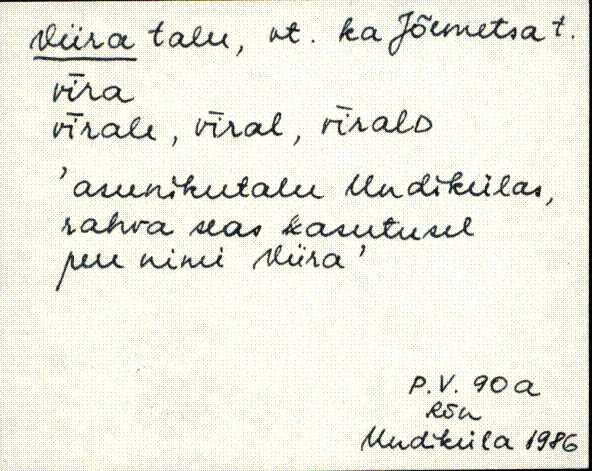 Viira talu, vt. ka Jõemetsa t.
vīra
vīrale, vīral, vīralᴅ
'asunikutalu Undikülas,
rahva seas kasutusel
see nimi Viira'
P.V. 90a
Rõn
Undiküla 1986